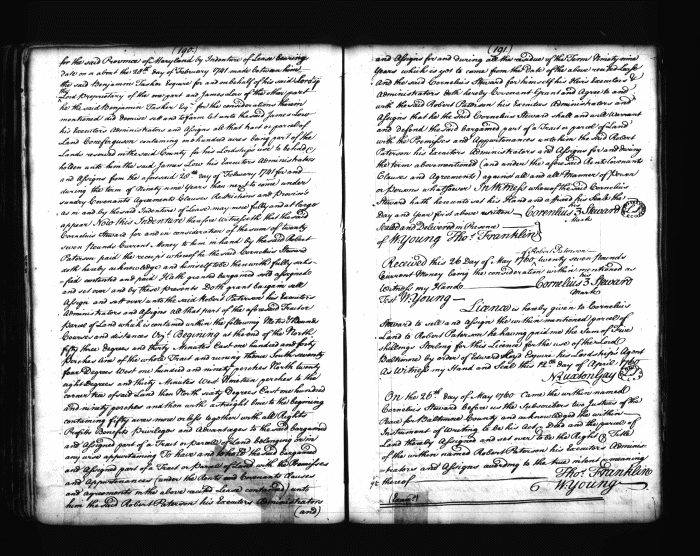 (190.)
for the said Province of Maryland by Indenture of Lease bearing
Date on or about the 28th day of February 1741 made between him
the said Benjamin Tasker Esquire for and on behalf of his said Lordsp
Proprietary of the one part and James Low of the other part
he the said Benjamin Tasker Esqr for the considerations therein
mentioned did demise sett and to farm let unto the said James Low
his Executors Administrators and Assigns all that tract or parcel of
Land containing one hundred acres being part of the
Lands reserved in the said County for his Lordships use to be held
holden unto him the said James Low his Executors Administrators
and Assigns from the aforesaid 28th day of February 1741 for and
during the term of Ninety nine Years then next to come under
sundry Covenants Agreements Clauses Restrictions and Provisoes
as in and by the said Indenture of Lease may more fully and at large
appear Now this Indenture therefore Witnesseth that the said
Cornelius Steward for and in consideration of the sum of twenty
seven Pounds Current Money to him in hand by the said Robert
Peterson paid the receipt whereof he the said Cornelius Steward
doth hereby acknowledge and himself to be therewith fully satis-
fied contented and paid Hath granted bargained sold assigned
and set over and by these presents Doth grant bargain sell
Assign and set over unto the said Robert Peterson his Executors
Administrators and Assigns all that part of the aforesaid Tract or
parcel of Land which is contained within the following Metes & Bounds
Courses and distances Beginning at the end of the North
fifty three degrees and thirty Minutes East one hundred and forty
perches line of the whole Tract and running thence South seventy
four Degrees West one hundred and ninety perches North twenty
eight Degrees and thirty Minutes West Nineteen perches to the
corner tree of said Land then North sixty Degrees East one hundred
and ninety perches and then with a straight line to the beginning
containing fifty acres more or less together with all Rights
Profits Benefits Priviledges and Advantages to the said bargained
and Assigned part of a Tract or parcel of Land belonging or in
any wise appertaining To have and to hold the said bargained
and Assigned part of a Tract or parcel of Land with the Premisses
and Appurtenances (under the Rents and Covenants Clauses
and agreements in the above recited Lease contained) unto
him the said Robert Peterson his Executors Administrators
(and)
(191.)
and Assigns for and during all the residue of the Term Ninety nine
Years which is yet to come from the Date of the above recited Lease
And the said Cornelius Steward for himself his Heirs Executors &
Administrators doth hereby Covenant Grant and Agree to and
with the said Robert Peterson his Executors Administrators and
Assigns that he the said Cornelius Steward shall and will Warrant
and Defend the said bargained part of a Tract or parcel of Land
with the Premisses and Appurtenances unto him the said Robert
Peterson his Executors Administrators and Assigns for and during
the term above mentioned (and under the aforesaid Rent Covenants
Clauses and Agreements) against all and all Manner of Person
or Persons whatsoever In Witness whereof the said Cornelius
Steward hath hereunto set his Hand and affixed his Seal the
Day and Year first above written
his
Cornelius 3 Steward
Mark
Sealed and Delivered in Presence
of W. Young Thos. Franklin
Robert Peterson
Received this 26 Day of May 1760 twenty seven Pounds
Current Money being the consideration within mentioned as
Witness my Hand
his
Cornelius 3 Steward
Mark
Test W. Young
Licence is hereby given to Cornelius
Steward to sell and assign the within mentioned parcel of
Land to Robert Peterson he having paid me the Sum of Five
shillings Sterling for this Licence for the use of the Lord
Baltimore by order of Edward Lloyd Esquire his Lordship's Agent
As Witness my Hand and Seal this 12th day of April 1760
N Ruxton Gay
On the 26th day of May 1760 Came the within named
Cornelius Steward before us the Subscribers two Justices of the
Peace for Baltimore County and acknowledged the within
Instrument of Writing to be his Act and Deed and the parcel of
Land thereby Assigned and set over to be the Right & Title
of the within named Robert Peterson his Executors Adminis-
trators and Assigns according to the true intent & meaning
thereof
Thos. Franklin
W. Young